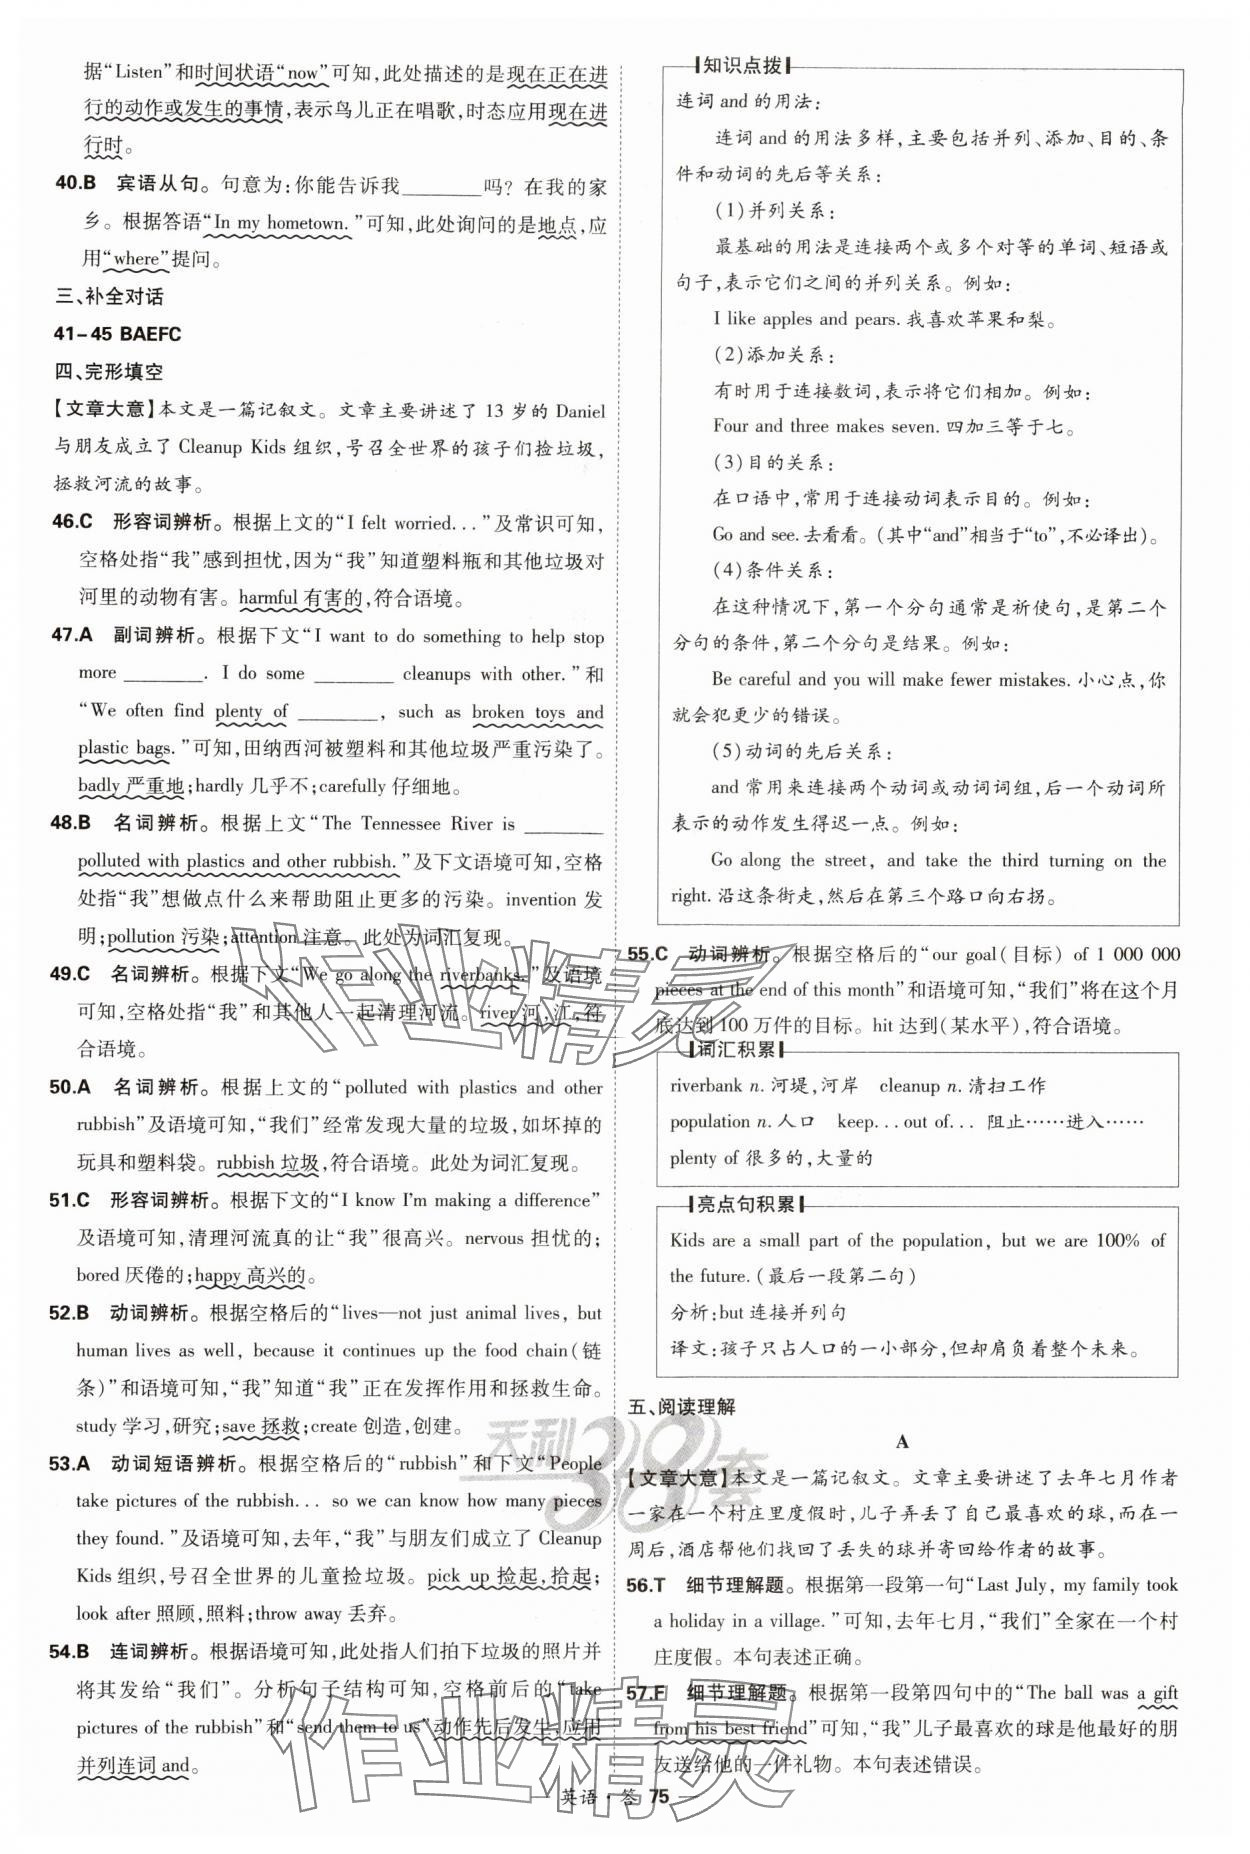 据“Listen”和时间状语“now”可知，此处描述的是现在正在进
行的动作或发生的事情，表示鸟儿正在唱歌，时态应用现在进
行时。
40.B 宾语从句。句意为：你能告诉我________吗？在我的家
乡。根据答语“In my hometown.”可知，此处询问的是地点，应
用“where”提问。
三、补全对话
41-45 BAEFC
四、完形填空
【文章大意】本文是一篇记叙文。文章主要讲述了 13 岁的 Daniel
与朋友成立了 Cleanup Kids 组织，号召全世界的孩子们捡垃圾，
拯救河流的故事。
46.C 形容词辨析。根据上文的“I felt worried...”及常识可知，
空格处指“我”感到担忧，因为“我”知道塑料瓶和其他垃圾对
河里的动物有害。harmful 有害的，符合语境。
47.A 副词辨析。根据下文“I want to do something to help stop
more ________. I do some ________ cleanups with other.”和
“We often find plenty of ________, such as broken toys and
plastic bags.”可知，田纳西河被塑料和其他垃圾严重污染了。
badly 严重地；hardly 几乎不；carefully 仔细地。
48.B 名词辨析。根据上文“The Tennessee River is ________
polluted with plastics and other rubbish.”及下文语境可知，空格
处指“我”想做点什么来帮助阻止更多的污染。invention 发
明；pollution 污染；attention 注意。此处为词汇复现。
49.C 名词辨析。根据下文“We go along the riverbanks.”及语境
可知，空格处指“我”和其他人一起清理河流。river 河，江，符
合语境。
50.A 名词辨析。根据上文的“polluted with plastics and other
rubbish”及语境可知，“我们”经常发现大量的垃圾，如坏掉的
玩具和塑料袋。rubbish 垃圾，符合语境。此处为词汇复现。
51.C 形容词辨析。根据下文的“I know I'm making a difference”
及语境可知，清理河流真的让“我”很高兴。nervous 担忧的；
bored 厌倦的；happy 高兴的。
52.B 动词辨析。根据空格后的“lives—not just animal lives, but
human lives as well, because it continues up the food chain(链
条)”和语境可知，“我”知道“我”正在发挥作用和拯救生命。
study 学习，研究；save 拯救；create 创造，创建。
53.A 动词短语辨析。根据空格后的“rubbish”和下文“People
take pictures of the rubbish... so we can know how many pieces
they found.”及语境可知，去年，“我”与朋友们成立了 Cleanup
Kids 组织，号召全世界的儿童捡垃圾。pick up 捡起，拾起；
look after 照顾，照料；throw away 丢弃。
54.B 连词辨析。根据语境可知，此处指人们拍下垃圾的照片并
将其发给“我们”。分析句子结构可知，空格前后的“Take
pictures of the rubbish”和“send them to us”动作先后发生，应用
并列连词 and。
知识点拨
连词 and 的用法：
连词 and 的用法多样，主要包括并列、添加、目的、条
件和动词的先后等关系：
(1)并列关系：
最基础的用法是连接两个或多个对等的单词、短语或
句子，表示它们之间的并列关系。例如：
I like apples and pears. 我喜欢苹果和梨。
(2)添加关系：
有时用于连接数词，表示将它们相加。例如：
Four and three makes seven. 四加三等于七。
(3)目的关系：
在口语中，常用于连接动词表示目的。例如：
Go and see. 去看看。(其中“and”相当于“to”，不必译出)。
(4)条件关系：
在这种情况下，第一个分句通常是祈使句，是第二个
分句的条件，第二个分句是结果。例如：
Be careful and you will make fewer mistakes. 小心点，你
就会犯更少的错误。
(5)动词的先后关系：
and 常用来连接两个动词或动词词组，后一个动词所
表示的动作发生得迟一点。例如：
Go along the street, and take the third turning on the
right. 沿这条街走，然后在第三个路口向右拐。
55.C 动词辨析。根据空格后的“our goal(目标) of 1 000 000
pieces at the end of this month”和语境可知，“我们”将在这个月
底达到 100 万件的目标。hit 达到(某水平)，符合语境。
词汇积累
riverbank n. 河堤，河岸 cleanup n. 清扫工作
population n. 人口 keep...out of... 阻止……进入……
plenty of 很多的，大量的
亮点句积累
Kids are a small part of the population, but we are 100% of
the future.(最后一段第二句)
分析：but 连接并列句
译文：孩子只占人口的一小部分，但却肩负着整个未来。
五、阅读理解
A
【文章大意】本文是一篇记叙文。文章主要讲述了去年七月作者
一家在一个村庄里度假时，儿子弄丢了自己最喜欢的球，而在一
周后，酒店帮他们找回了丢失的球并寄回给作者的故事。
56.T 细节理解题。根据第一段第一句“Last July, my family took
a holiday in a village.”可知，去年七月，“我们”全家在一个村
庄度假。本句表述正确。
57.F 细节理解题。根据第一段第四句中的“The ball was a gift
from his best friend”可知，“我”儿子最喜欢的球是他最好的朋
友送给他的一件礼物。本句表述错误。
英语·答 75
作业精灵
天利38套
作业精灵